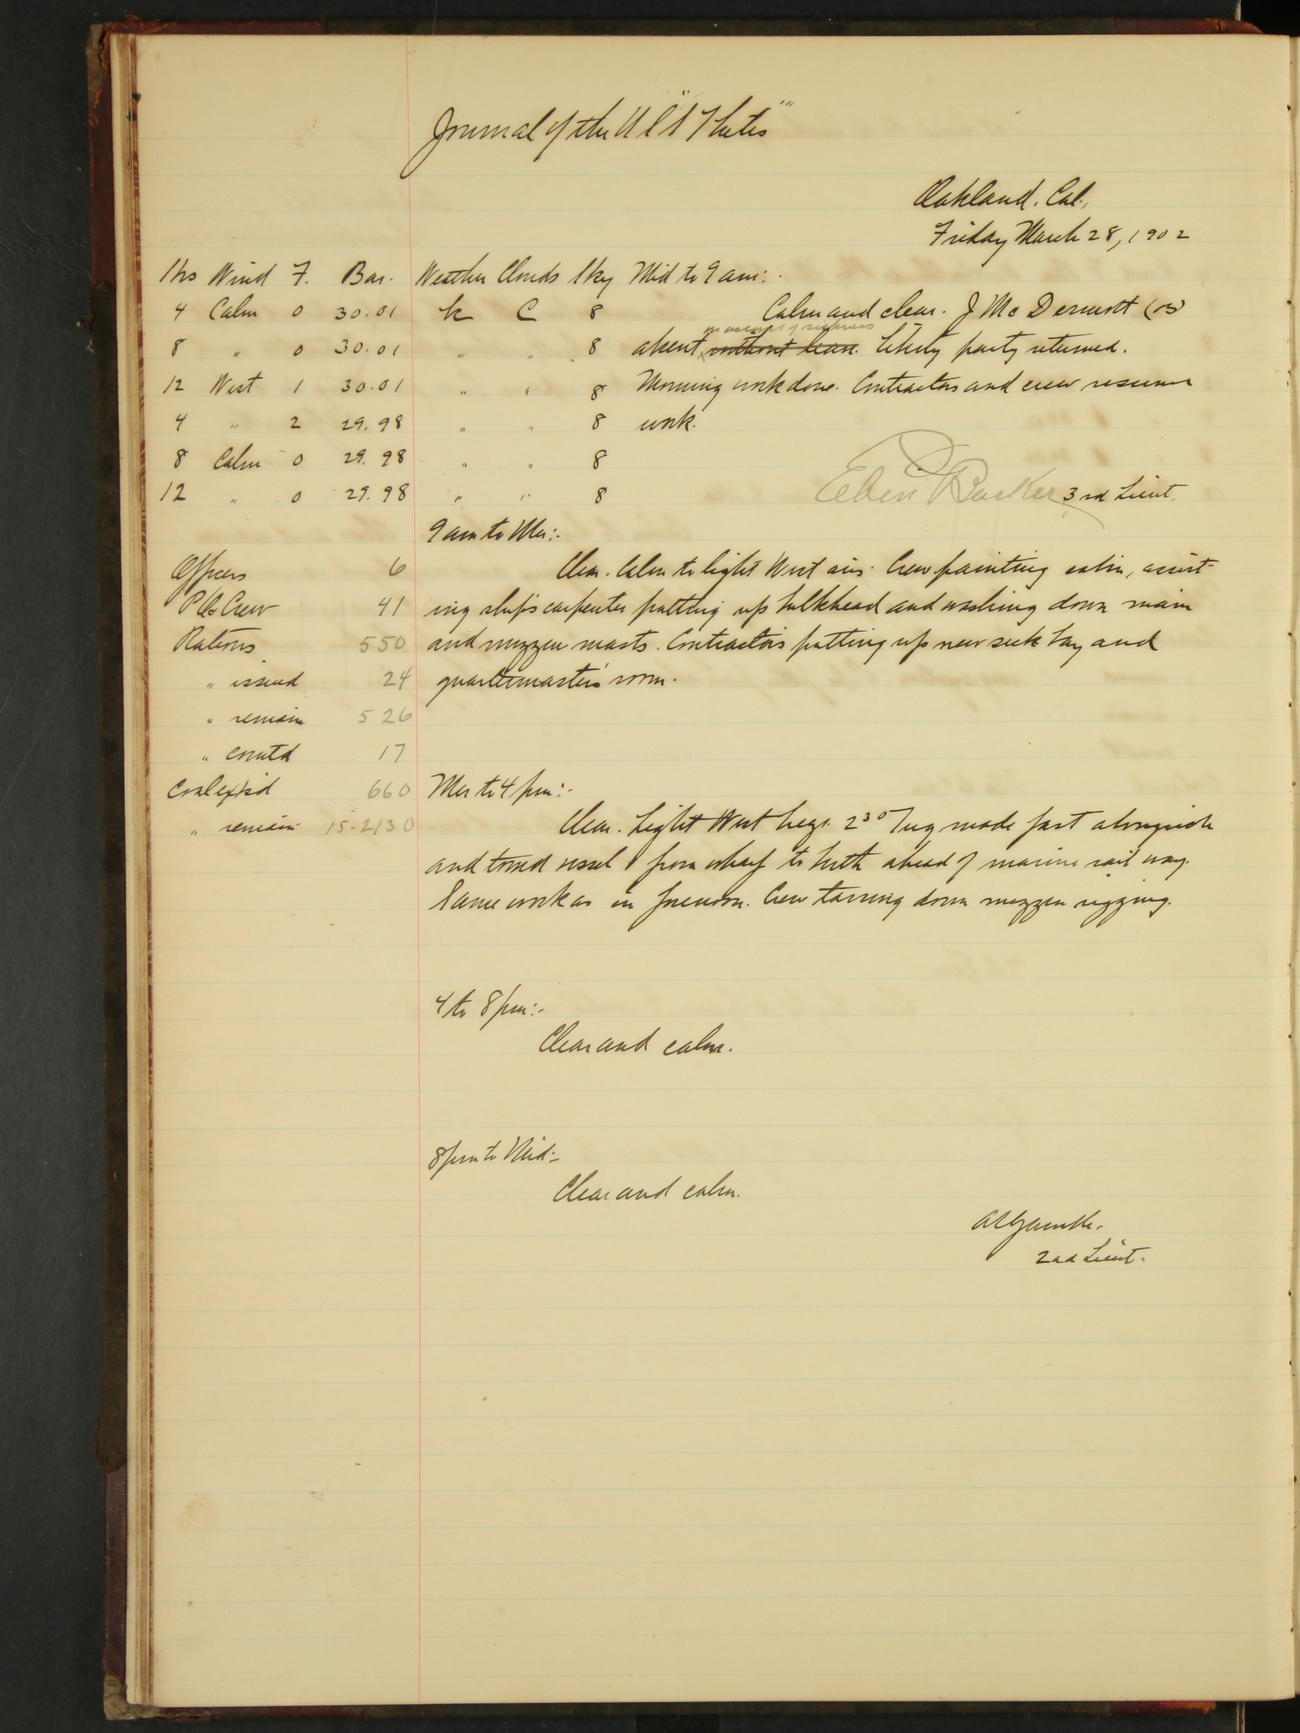 Journal of the U.S.S. "Thetis"
Oakland. Cal.,
Friday March 28, 1902
Hrs Wind F. Bar. Weather Clouds Sky Mid to 9 am:-
4 Calm 0 30.01 bc C 8 Calm and clear. J Mc Dermott (OS)
on account of sickness
8 " 0 30.01 " " 8 absent without leave. Liberty party returned.
12 West 1 30.01 " " 8 Morning work done. Contractors and crew resume
4 " 2 29.98 " " 8 work.
8 Calm 0 29.98 " " 8
12 " 0 29.98 " " 8 Eben Barker 3rd Lieut.
9 am to Mer:-
Officers 6 Clear. Calm to light West airs. Crew painting cabin, assist-
P.A. Crew 41 ing ship's carpenter putting up bulkhead and washing down main
Rations 550 and mizzen masts. Contractors putting up new sick bay and
" issued 24 quartermaster's room.
" remain 526
" comtd 17
Coal exp'd 660 Mer to 4 pm:-
" remain 15-2130 Clear. Light West breeze. 2 30 Tug made fast alongside
and towed vessel from wharf to berth ahead of marine rail way.
Same work as in forenoon. Crew tarring down mizzen rigging.
4 to 8 pm:-
Clear and calm.
8 pm to Mid:-
Clear and calm.
2nd Lieut.